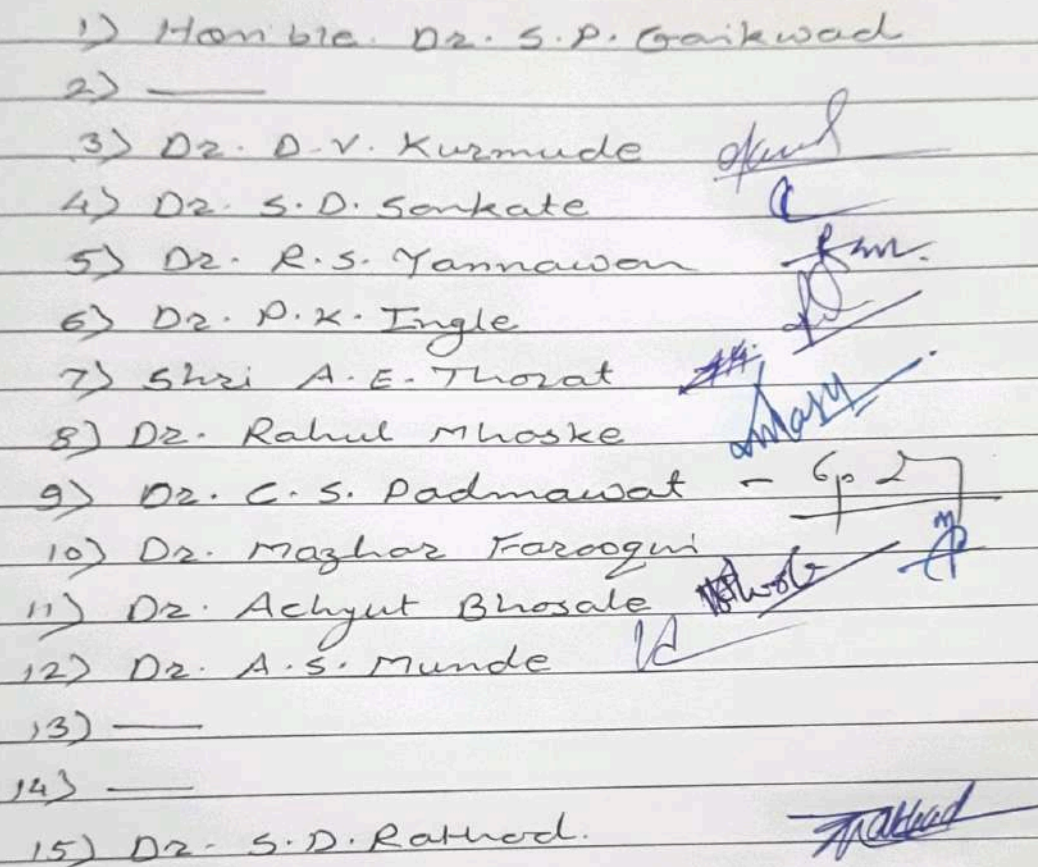 1) Hon'ble. Dr. S.P. Gaikwad
2) —
3) Dr. D.V. Kurmude
4) Dr. S.D. Sonkate
5) Dr. R.S. Yannawar
6) Dr. P.K. Ingle
7) Shri A.E. Thorat
8) Dr. Rahul Mhoske
9) Dr. C.S. Padmawat -
10) Dr. Mazhar Farooqui
11) Dr. Achyut Bhosale
12) Dr. A.S. Munde
13) —
14) —
15) Dr. S.D. Rathod.